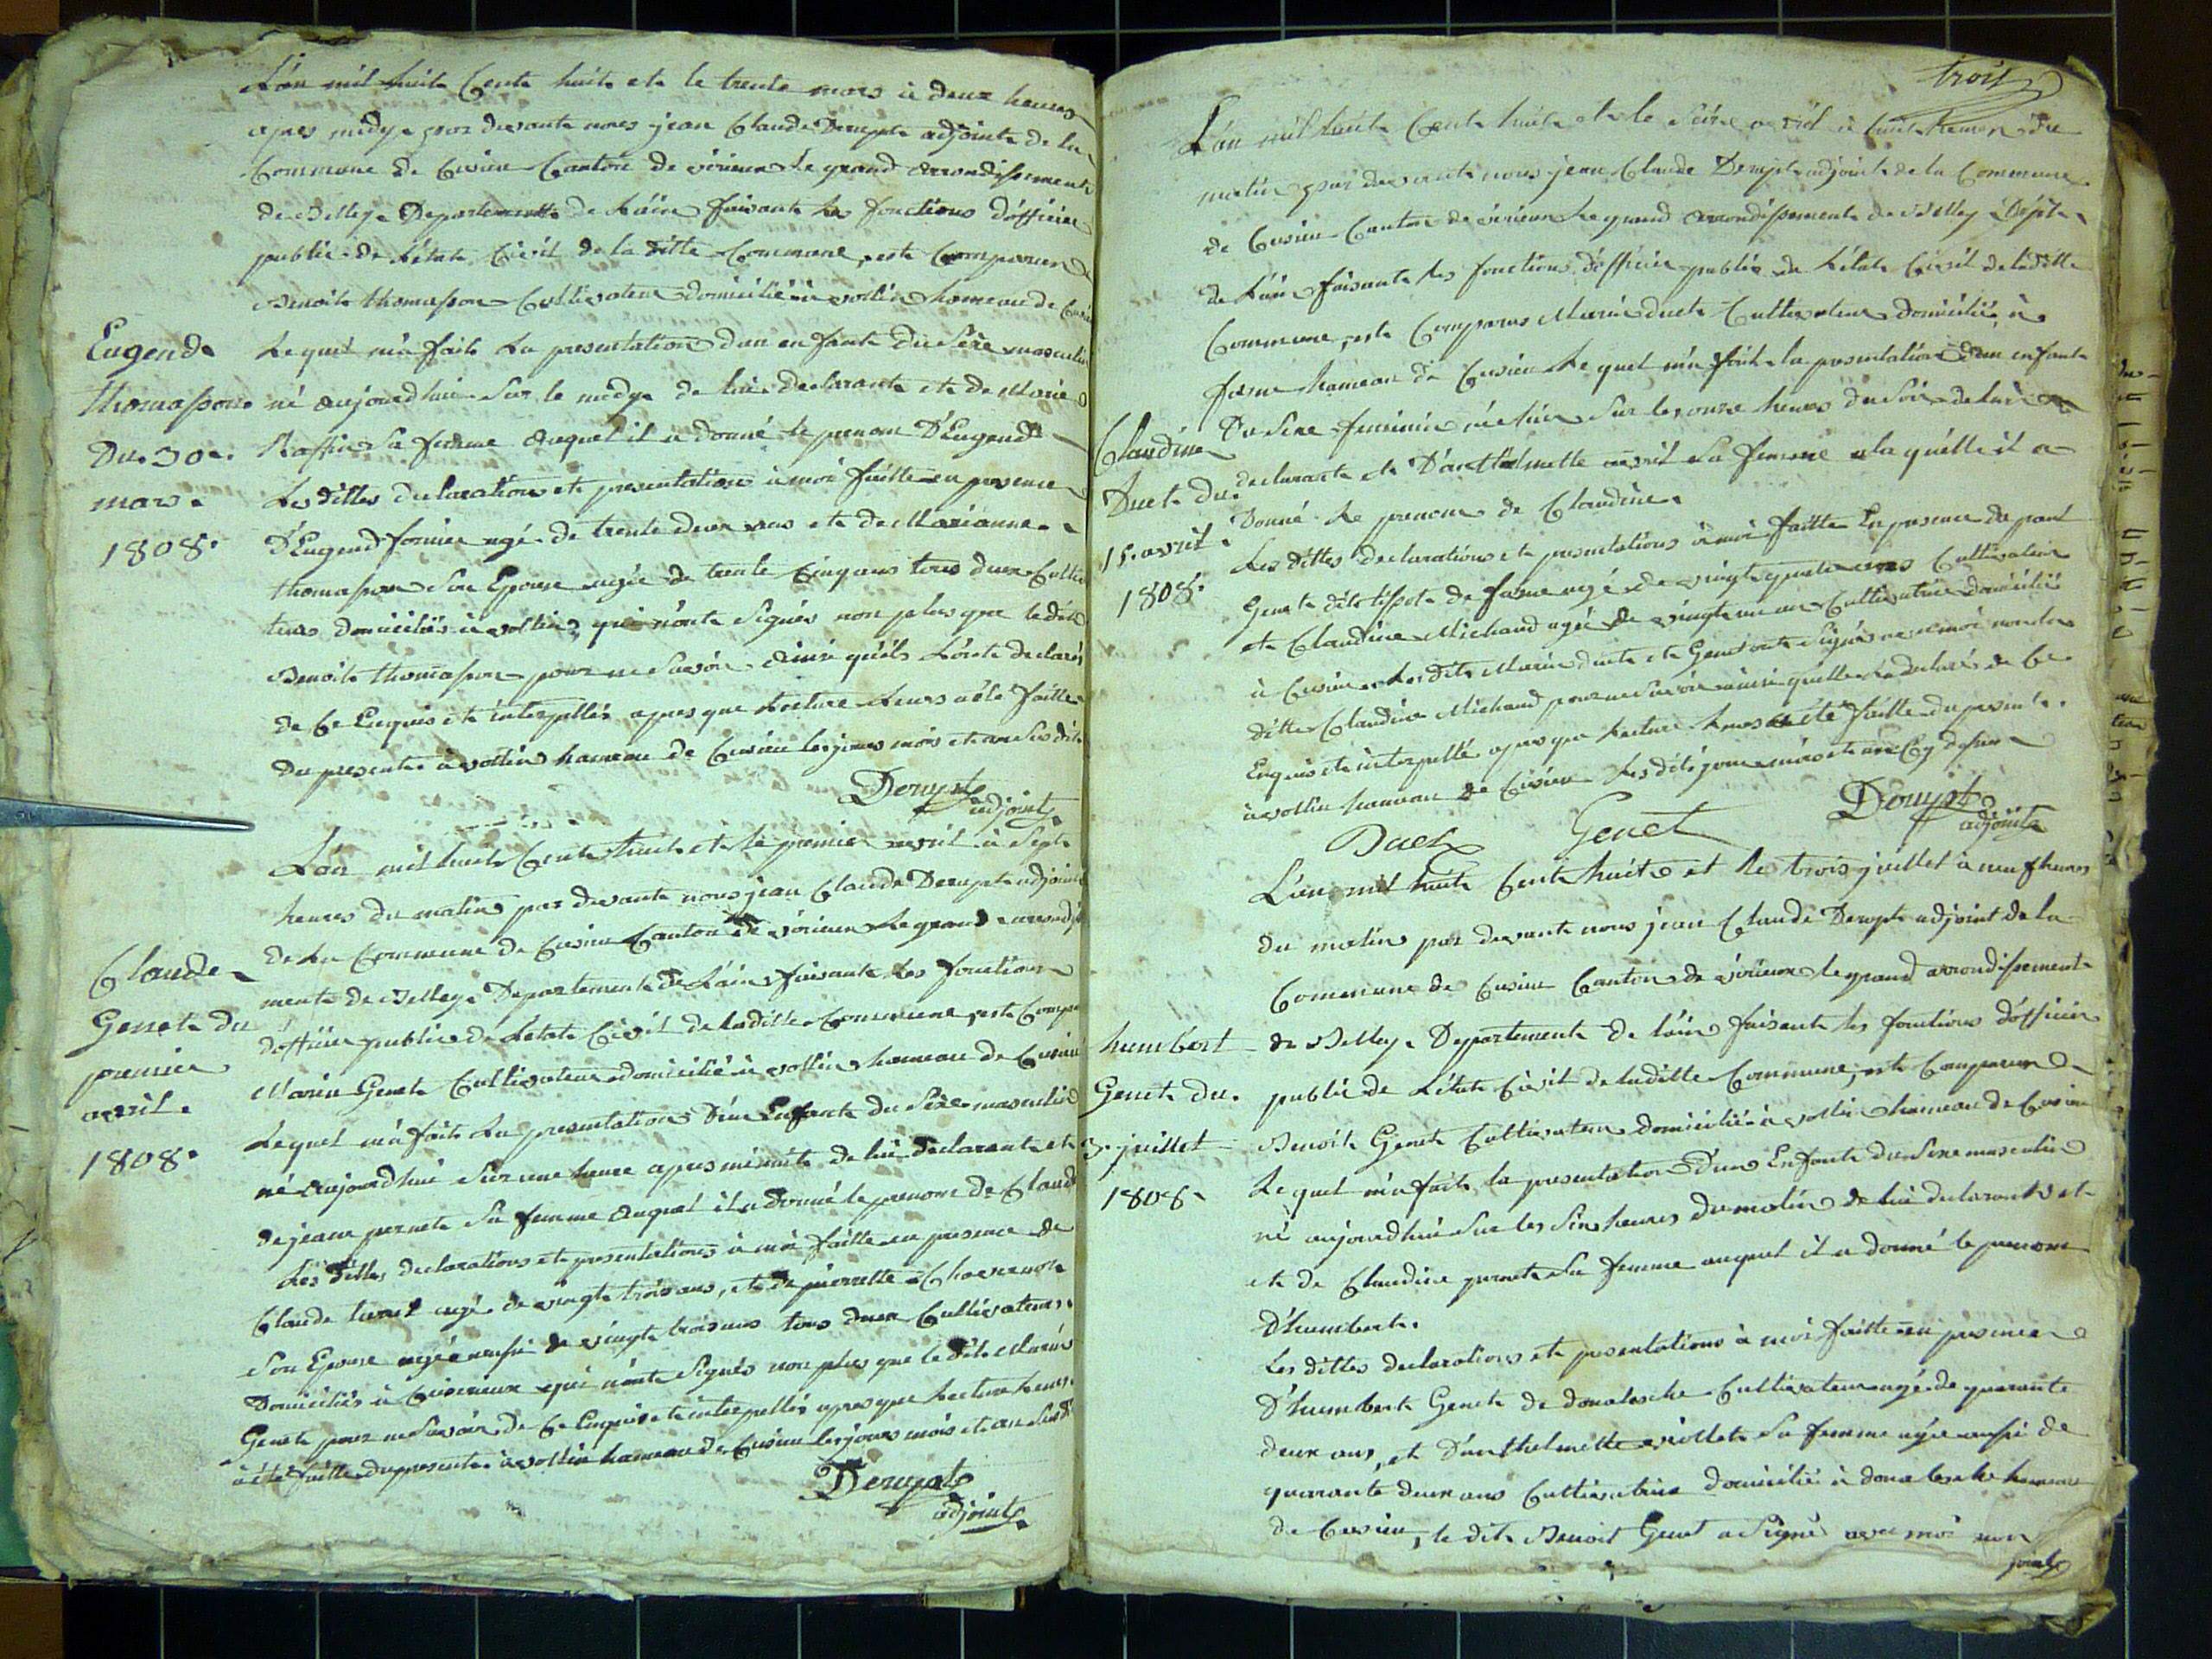 L'an mil huit Cents huit et le trente mars à deux heures
apres midy par devante nous jean Claude Derupt adjointe de la
Commune de Cusieu Canton de virieux le grand arrondissement
de Belley Departemente de L'ain faisante les fonctions d'officier
public de L'etate Civil de la ditte Commune, este Comparu
Benoit thomasson Cultivateur domicilié à vollin hameau de
Eugend Lequel m'a faite La presentation d'un enfante du Sexe masculin
thomasson né aujourdhui Sur le midy de lui declarante et de Marie
Du 30e. Raffin Sa femme auquel il a donné le prenom D'Eugend
mars Les dittes declarations et presentation à moi faitte en presence
1808. D'Eugend fornier agé de trente deux ans et de Marianne
thomasson Son Epouse agée de trente Cinq ans tous deux Culti
teurs domiciliés à vollin, qui n'onte Signés non plus que le dit
Benoit thomasson pour ne Savoir ainsi qu'ils L'onte declarés
de Ce Enquis et interpellés apres que Lecture Leurs a été faitte
Du presente à vollin hameau de Cusieu les jours mois et an Susdit
Derupt
adjoint
L'an mil huit Cents huit et le premier avril à Sept
heures du matin par devante nous jean Claude Derupt adjoint
de La Commune de Cusieu Canton de virieux Legrand arrondis
Claude mente de Belley Departemente de L'ain faisante Les fonctions
Genet du d'officier public de L'etate Civil de la ditte Commune, este Compa
premier Marin Genet Cultivateur domicilié à vollin hameau de Cusieu
avril Lequel m'a faite La presentation D'un Enfante du Sexe masculin
1808. né aujourdhui Sur une heure apres minuit de lui declarante et
de jeanne pernete Sa femme auquel il a donné le prenom de Claud
Les dittes declarations et presentations à moi faitte en presence de
Claude agé de vingt trois ans, et de pierrette
Son Epouse agée aussi de vingt trois ans tous deux Cultivateurs
Domiciliés à qui n'onte Signés non plus que le dit Marin
Genet pour ne Savoir de Ce Enquis et interpellés apres que Lecture Leurs
a été faitte du presente à vollin hameau de Cusieu les jours mois et an Susdit
Derupt
adjoint
trois
L'an mil huit Cents huit et le Seize avril à huit heures du
matin par devante nous jean Claude Derupt adjointe de la Commune
de Cusieu Canton de virieux Le grand arrondissemente de Belley Depte
de L'ain faisante les fonctions d'officier public de L'etate Civil de la ditte
Commune, este Comparus Marin ducte Cultivateur domicilié à
fosme hameau de Cusieu Lequel m'a faite la presentation d'un enfante
Du Sexe feminin né hier Sur les onze heures du Soir de lui
Claudine declarante et D'anthelmette avril Sa femme a la quelle il a
Duct du Donné Le prenom de Claudine.
15. avril Les dittes declarations et presentations à moi faitte En presence de paul
1808. Genet dite tissot de fosme agé de vingt quatre ans Cultivateur
et Claudine Michaud agée de vingt un ans Cultivatrice domiciliés
à Cusieu. Les dits Marin ducte et Genet onte Signés avec moi non la
ditte Claudine Michaud pour ne Savoir ainsi qu'elle l'a declarés de Ce
Enquis et interpellé apres que Lecture Leurs a été faitte du presente
à vollin hameau de Cusieu Les dits jour mois et an Cy dessus
Duct Genet Derupt
adjoint
L'an mil huit Cents huit et Le trois juillet à neuf heures
du matin par devante nous jean Claude Derupt adjoint de la
Commune de Cusieu Canton de virieux le grand arrondissemente
humbert de Belley Departemente de l'ain faisante les fonctions d'officier
Genet du public de L'etate Civil de la ditte Commune, este Comparu
3. juillet Benoit Genet Cultivateur domicilié à vollin hameau de Cusieu
1808 Lequel m'a faite la presentation d'un Enfante du Sexe masculin
né aujourdhui Sur les Six heures du matin de lui declarante et
et de Claudine pernete Sa femme auquel il a donné le prenom
D'humberte.
Les dittes declarations et presentations à moi faitte en presence
D'humbert Genet de Cultivateur agé de quarante
deux ans, et D'anthelmette violet Sa femme agée aussi de
quarante deux ans Cultivatrice domiciliés à hameau
de Cusieu, le dit Benoit Genet a Signé avec moi non